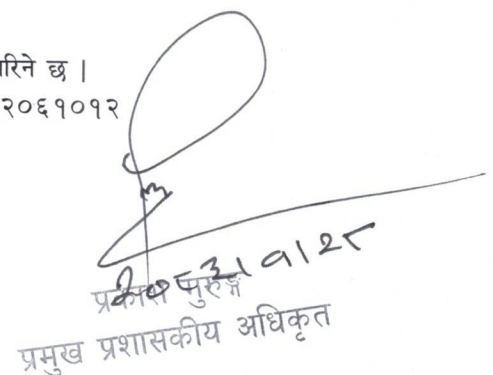 गरिने छ ।
२०६१०१२
२०८३।१।२८
प्रकाश गुरुङ्ग
प्रमुख प्रशासकीय अधिकृत